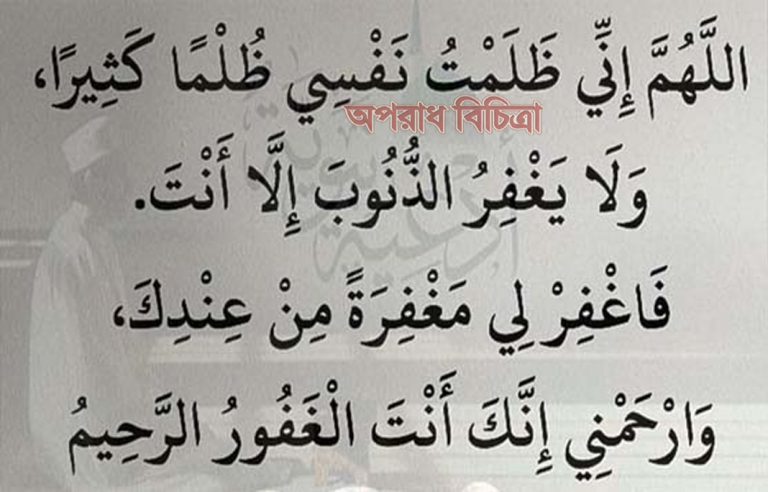 اللَّهُمَّ إِنِّي ظَلَمْتُ نَفْسِي ظُلْمًا كَثِيرًا،
অপরাধ বিচিত্রা
وَلَا يَغْفِرُ الذُّنُوبَ إِلَّا أَنْتَ.
أدعية نبوية
فَاغْفِرْ لِي مَغْفِرَةً مِنْ عِنْدِكَ،
وَارْحَمْنِي إِنَّكَ أَنْتَ الْغَفُورُ الرَّحِيمُ